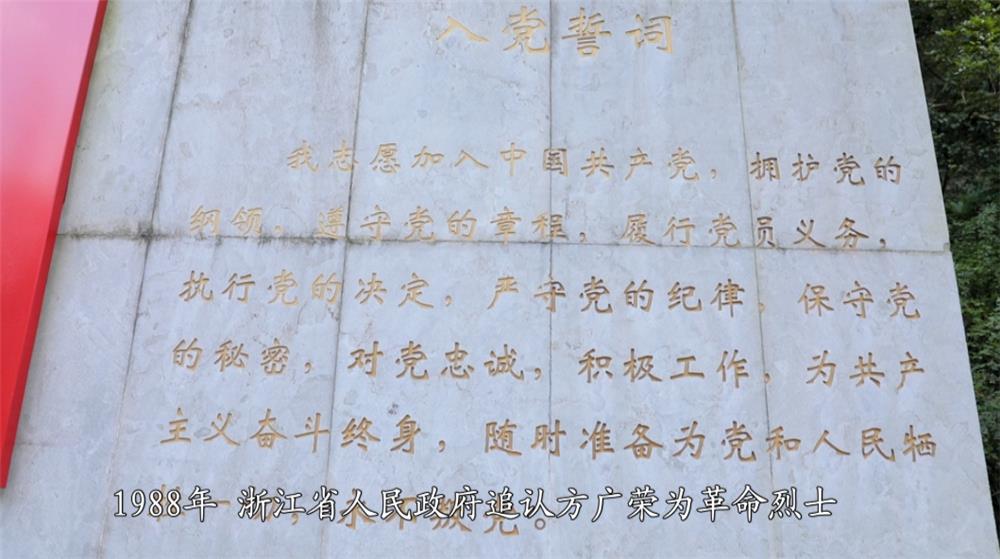 入党誓词
我志愿加入中国共产党，拥护党的
纲领，遵守党的章程，履行党员义务，
执行党的决定，严守党的纪律，保守党
的秘密，对党忠诚，积极工作，为共产
主义奋斗终身，随时准备为党和人民牺
党。
1988年 浙江省人民政府追认方广荣为革命烈士